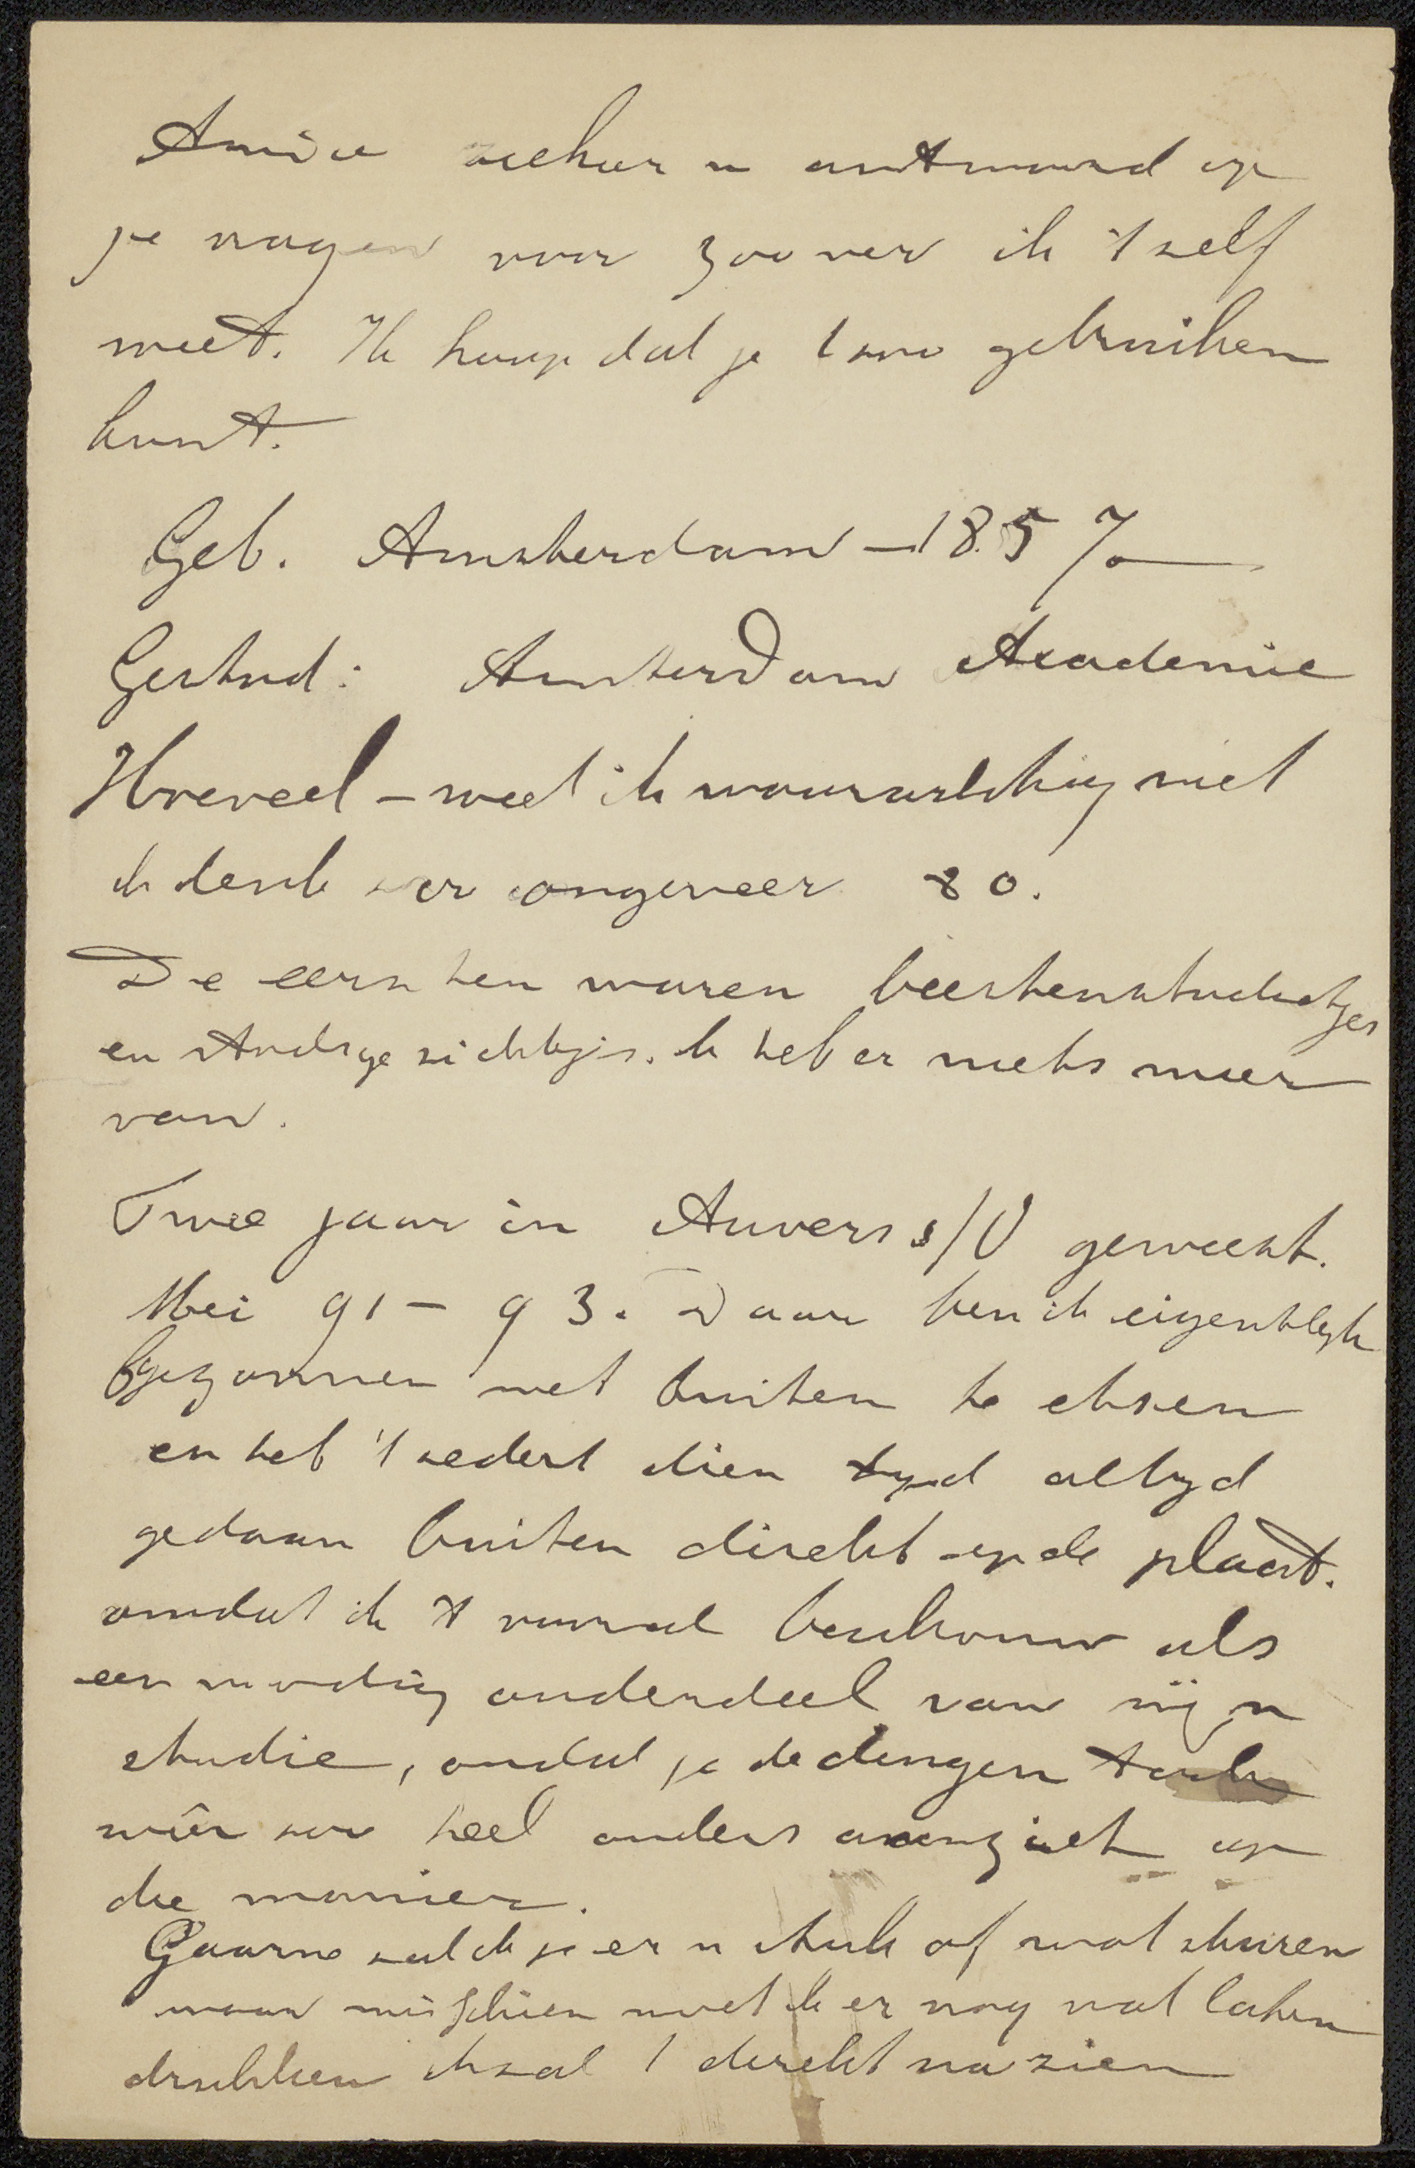 Amice ziehier n antwoord op
je vragen voor zoo ver ik 't zelf
weet. Ik hoop dat je 't zoo gebruiken
kunt.
Geb. Amsterdam – 1857
Gestud: Amsterdam Academie
Hoeveel – weet ik waarachtig niet
ik denk zoo ongeveer 80.
De eersten waren beestenstudietjes
en stadsgezichtjes. ik heb er niets meer
van.
Twee jaar in Auvers s/O geweest.
Mei 91 – 93. Daar ben ik eigenlyk
begonnen met buiten te etsen
en heb 't sedert dien tyd altyd
gedaan buiten direkt op de plaat.
omdat ik 't vooral beschouw als
een noodig onderdeel van mijn
studie, omdat je de dingen toch
wêer zoo heel anders aanziet op
die manier.
Gaarne zal ik je er n stuk of wat sturen
maar misschien moet ik er nog wat laten
drukken ik zal 't direkt nazien